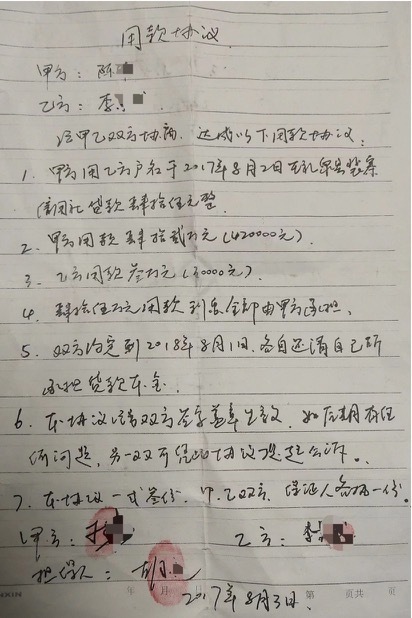 用款协议
甲方：陈
乙方：李
经甲乙双方协商，达成以下用款协议：
1. 甲方用乙方户名于2017年8月2日在
信用社贷款肆拾伍元整
2. 甲方用款肆拾贰万元（420000元）.
3. 乙方用款叁万元（30000元）
4. 肆拾伍万元用款利息全部由甲方承担.
5. 双方约定到2018年8月1日，各自还清自己所
承担贷款本金.
6. 本协议经双方签字盖章生效，如后期有任
何问题，另一双可凭此协议提起公诉。
7. 本协议一式叁份，甲、乙双方、保证人各执一份。
甲方： 乙方：李
担保人：胡
年 月 第 页共 页
2017年8月3日.